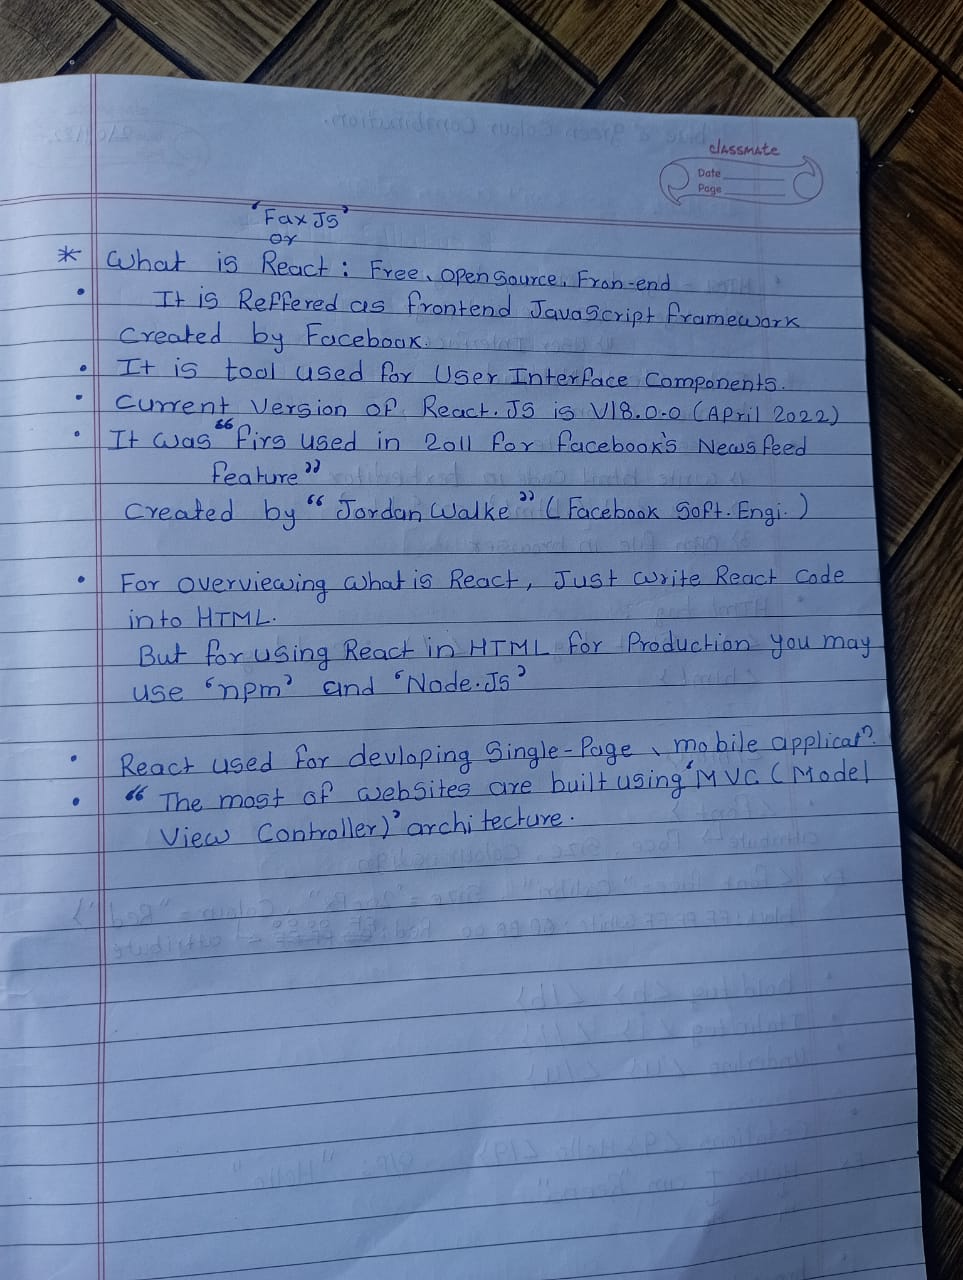 classmate
Date
Page
'Fax JS'
or
* What is React : Free, open source, Fron-end
• It is Reffered as frontend JavaScript framework
created by Facebook.
• It is tool used for User Interface Components.
• Current Version of React.JS is V18.0.0 (April 2022)
• It was "firs used in 2011 for facebook's Newsfeed
feature"
Created by "Jordan Walke" (Facebook Soft. Engi.)
• For overviewing what is React, Just write React code
into HTML.
But for using React in HTML for Production you may
use 'npm' and 'Node.JS'
• React used for devloping Single-Page, mobile applicatⁿ.
• " The most of websites are built using 'MVC (Model
View Controller)' architecture.